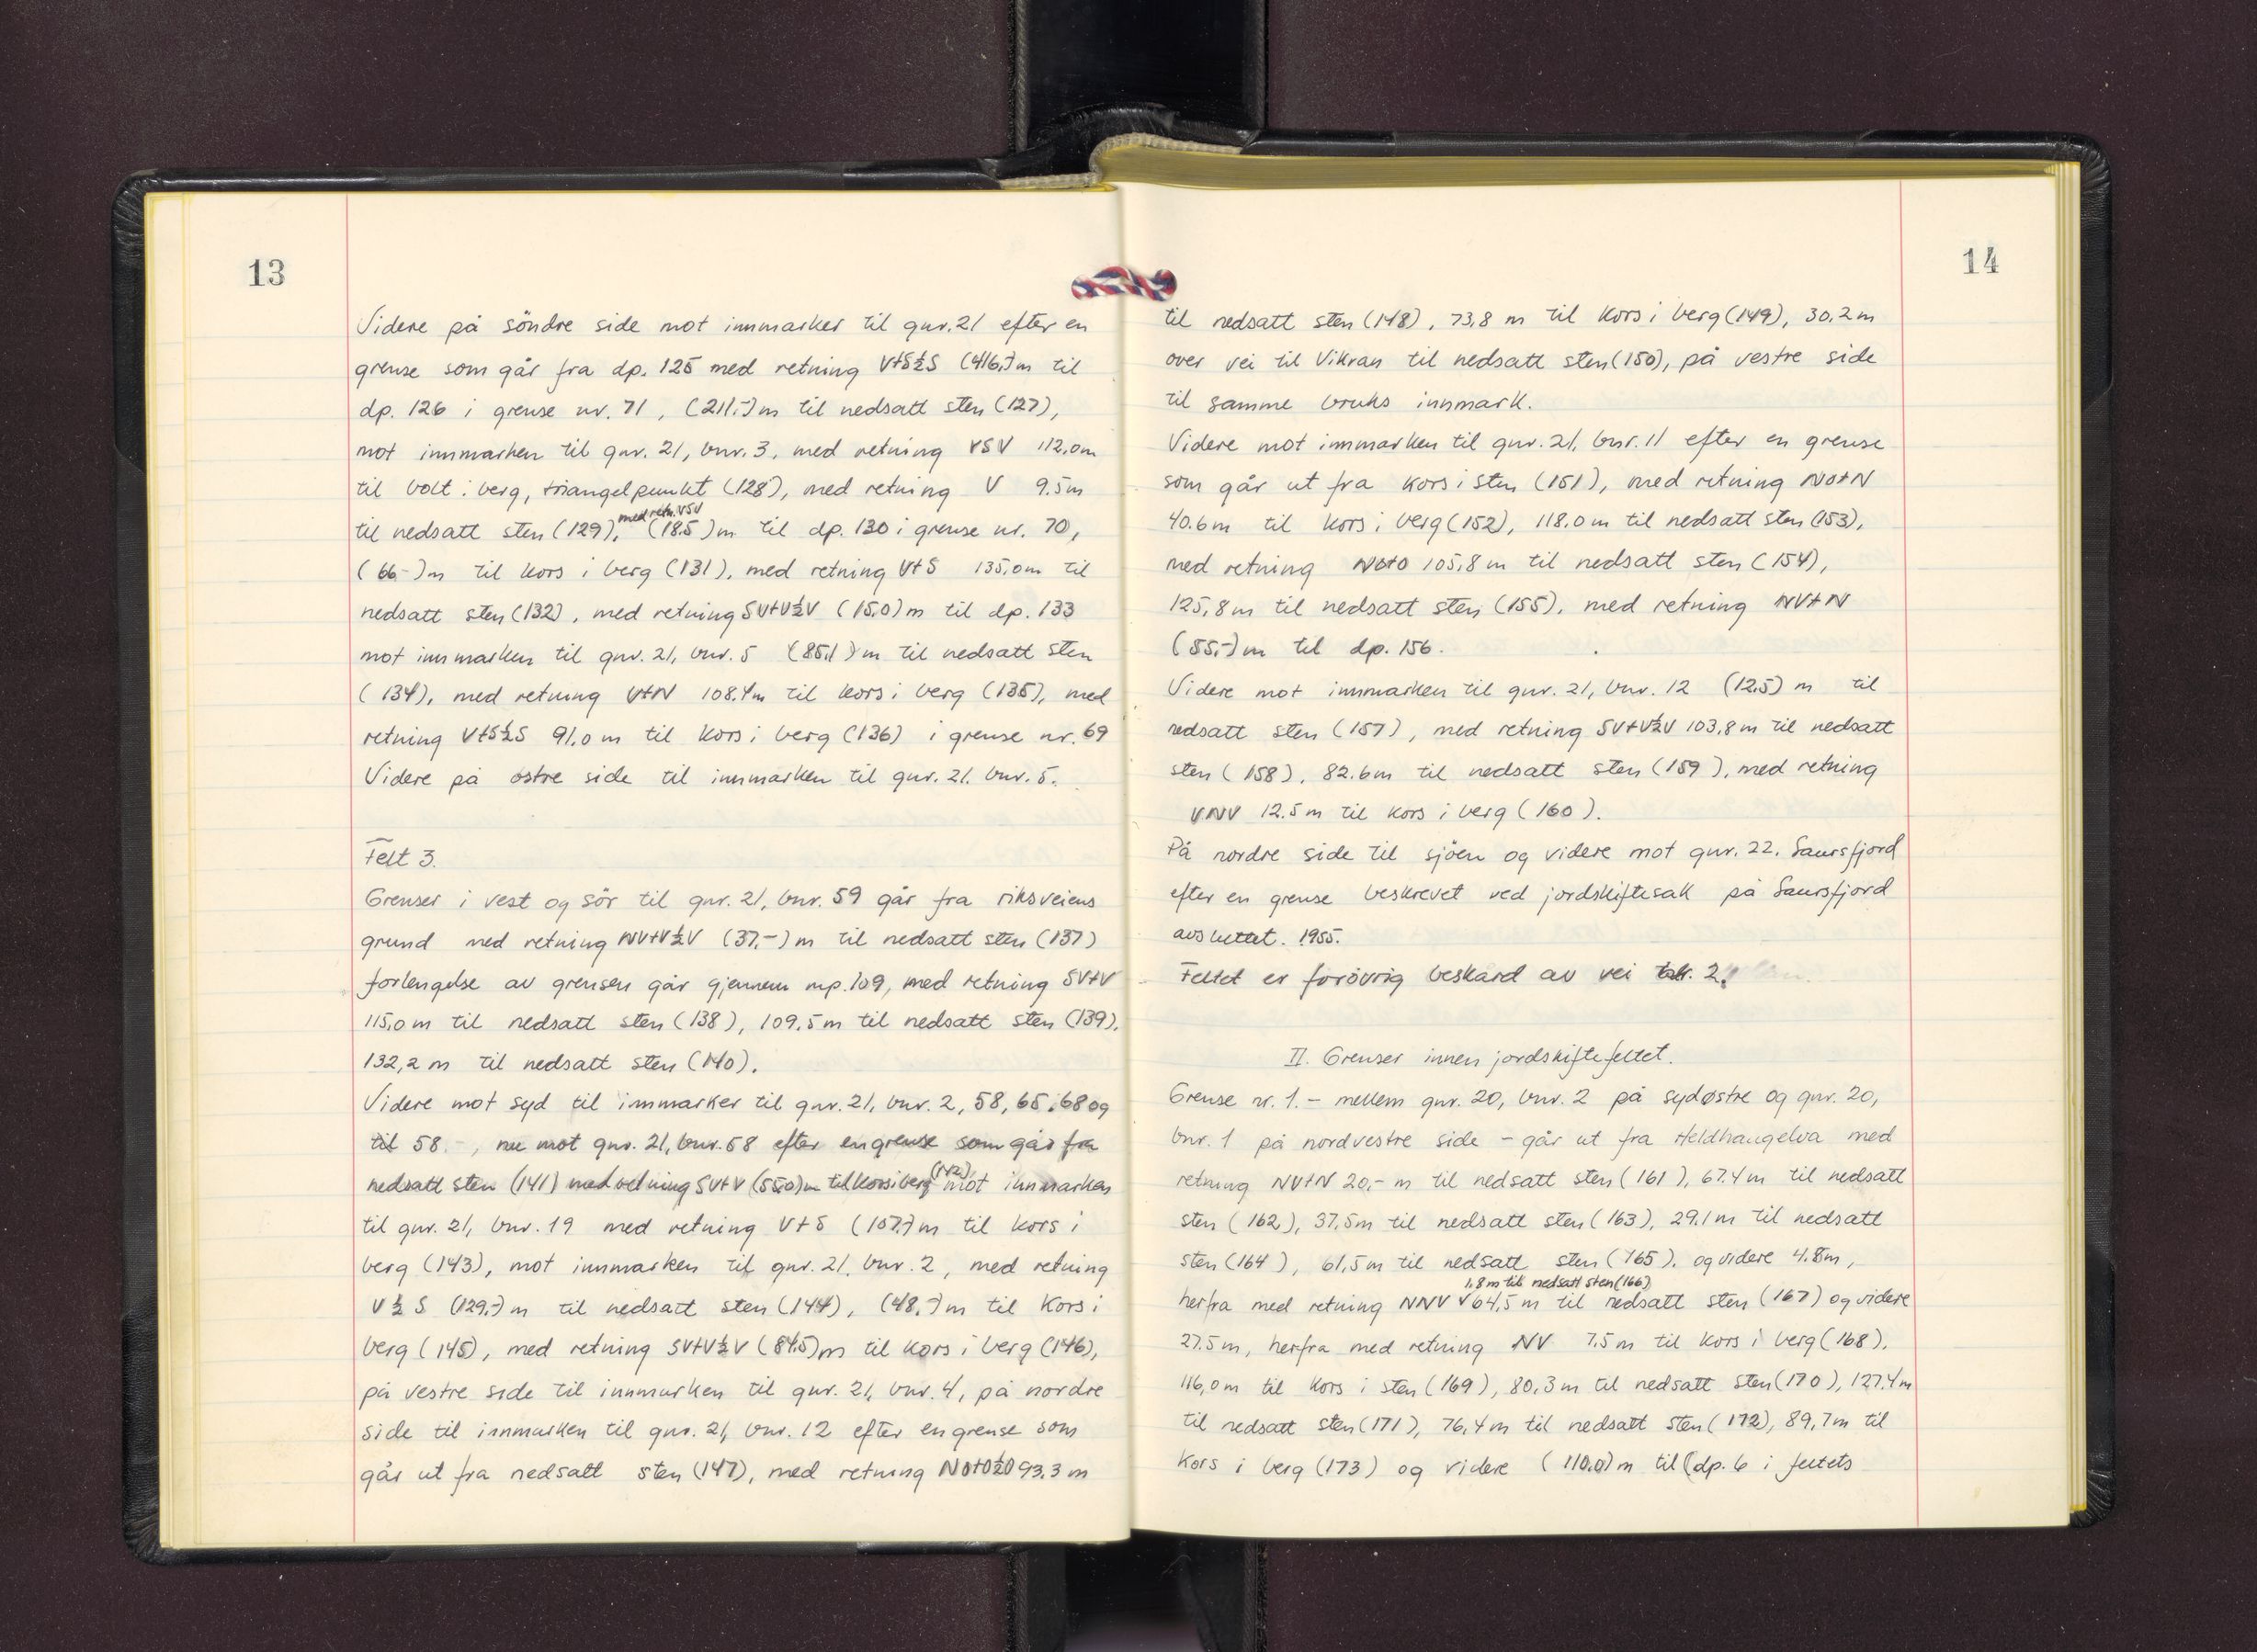 13
Videre på söndre side mot innmarker til gnr. 21 efter en
grense som går fra dp. 125 med retning V+S½S (416,-)m til
dp. 126 i grense nr. 71, (211,-)m til nedsatt sten (127),
mot innmarken til gnr. 21, bnr. 3. med retning VSV 112,0m
til bolt i berg, triangelpunkt (128), med retning V 9.5m
med retn. VSV
til nedsatt sten (129), (18.5)m til dp. 130 i grense nr. 70,
(66,-)m til kors i berg (131), med retning V+S 135,0m til
nedsatt sten (132), med retning SV+V½V (15,0)m til dp. 133
mot innmarken til gnr. 21, bnr. 5 (85,1)m til nedsatt sten
(134), med retning V+N 108.4m til kors i berg (135), med
retning V+S½S 91,0m til kors i berg (136) i grense nr. 69
Videre på østre side til innmarken til gnr. 21. bnr. 5.
Felt 3.
Grenser i vest og sör til gnr. 21, bnr. 59 går fra riksveiens
grund med retning NV+V½V (37,-)m til nedsatt sten (137)
forlengelse av grensen går gjennem mp. 109, med retning SV+V
115,0m til nedsatt sten (138), 109.5m til nedsatt sten (139),
132,2m til nedsatt sten (140).
Videre mot syd til innmarker til gnr. 21, bnr. 2, 58, 65, 68 og
til 58 -, mot gnr. 21, bnr. 58 efter en grense som går fra
nedsatt sten (141) med retning SV+V (55,0)m til kors i berg (142), mot innmarken
til gnr. 21, bnr. 19 med retning V+S (107,-)m til kors i
berg (143), mot innmarken til gnr. 21. bnr. 2, med retning
V½S (129,-)m til nedsatt sten (144), (48,-)m til kors i
berg (145), med retning SV+V½V (84.5)m til kors i berg (146),
på vestre side til innmarken til gnr. 21, bnr. 4, på nordre
side til innmarken til gnr. 21, bnr. 12 efter en grense som
går ut fra nedsatt sten (147), med retning NO+O½O 93,3m
14
til nedsatt sten (148), 73,8m til kors i berg (149), 30,2m
over vei til Vikran til nedsatt sten (150), på vestre side
til samme bruks innmark.
Videre mot innmarken til gnr. 21, bnr. 11 efter en grense
som går ut fra kors i sten (151), med retning NO+N
40.6m til kors i berg (152), 118.0m til nedsatt sten (153),
med retning NO+O 105,8m til nedsatt sten (154),
125,8m til nedsatt sten (155), med retning NV+N
(55,-)m til dp. 156.
Videre mot innmarken til gnr. 21, bnr. 12 (12,5)m til
nedsatt sten (157), med retning SV+V½V 103,8m til nedsatt
sten (158), 82.6m til nedsatt sten (159), med retning
VNV 12.5m til kors i berg (160).
På nordre side til sjöen og videre mot gnr. 22. Saursfjord
efter en grense beskrevet ved jordskiftesak på Saursfjord
avsluttet. 1955.
Feltet er forövrig beskård av vei 2.
II. Grenser innen jordskiftefeltet.
Grense nr. 1. – mellem gnr. 20, bnr. 2 på sydøstre og gnr. 20,
bnr. 1 på nordvestre side – går ut fra Heldhaugelva med
retning NV+N 20,-m til nedsatt sten (161), 67.4m til nedsatt
sten (162), 37,5m til nedsatt sten (163), 29,1m til nedsatt
sten (164), 61,5m til nedsatt sten (165), og videre 4.8m,
1,8m til nedsatt sten (166)
herfra med retning NNV √64,5m til nedsatt sten (167) og videre
27.5m, herfra med retning NV 7.5m til kors i berg (168),
116,0m til kors i sten (169), 80,3m til nedsatt sten (170), 127.4m
til nedsatt sten (171), 76,4m til nedsatt sten (172), 89,7m til
kors i berg (173) og videre (110,0)m til (dp. 6 i feltets